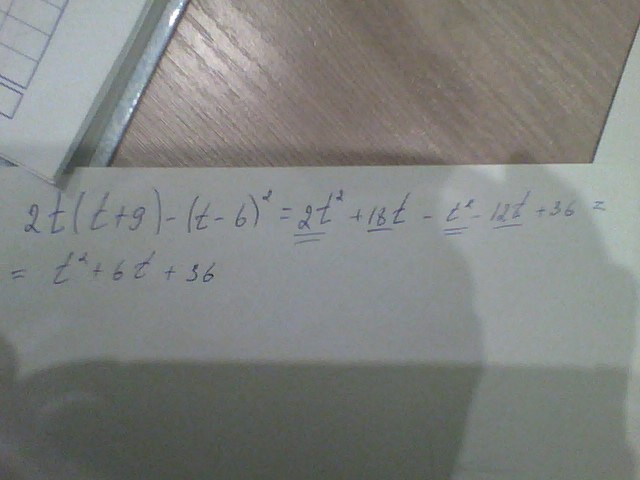 2t(t+9)-(t-6)²=2t²+18t-t²-12t+36=
= t²+6t+36